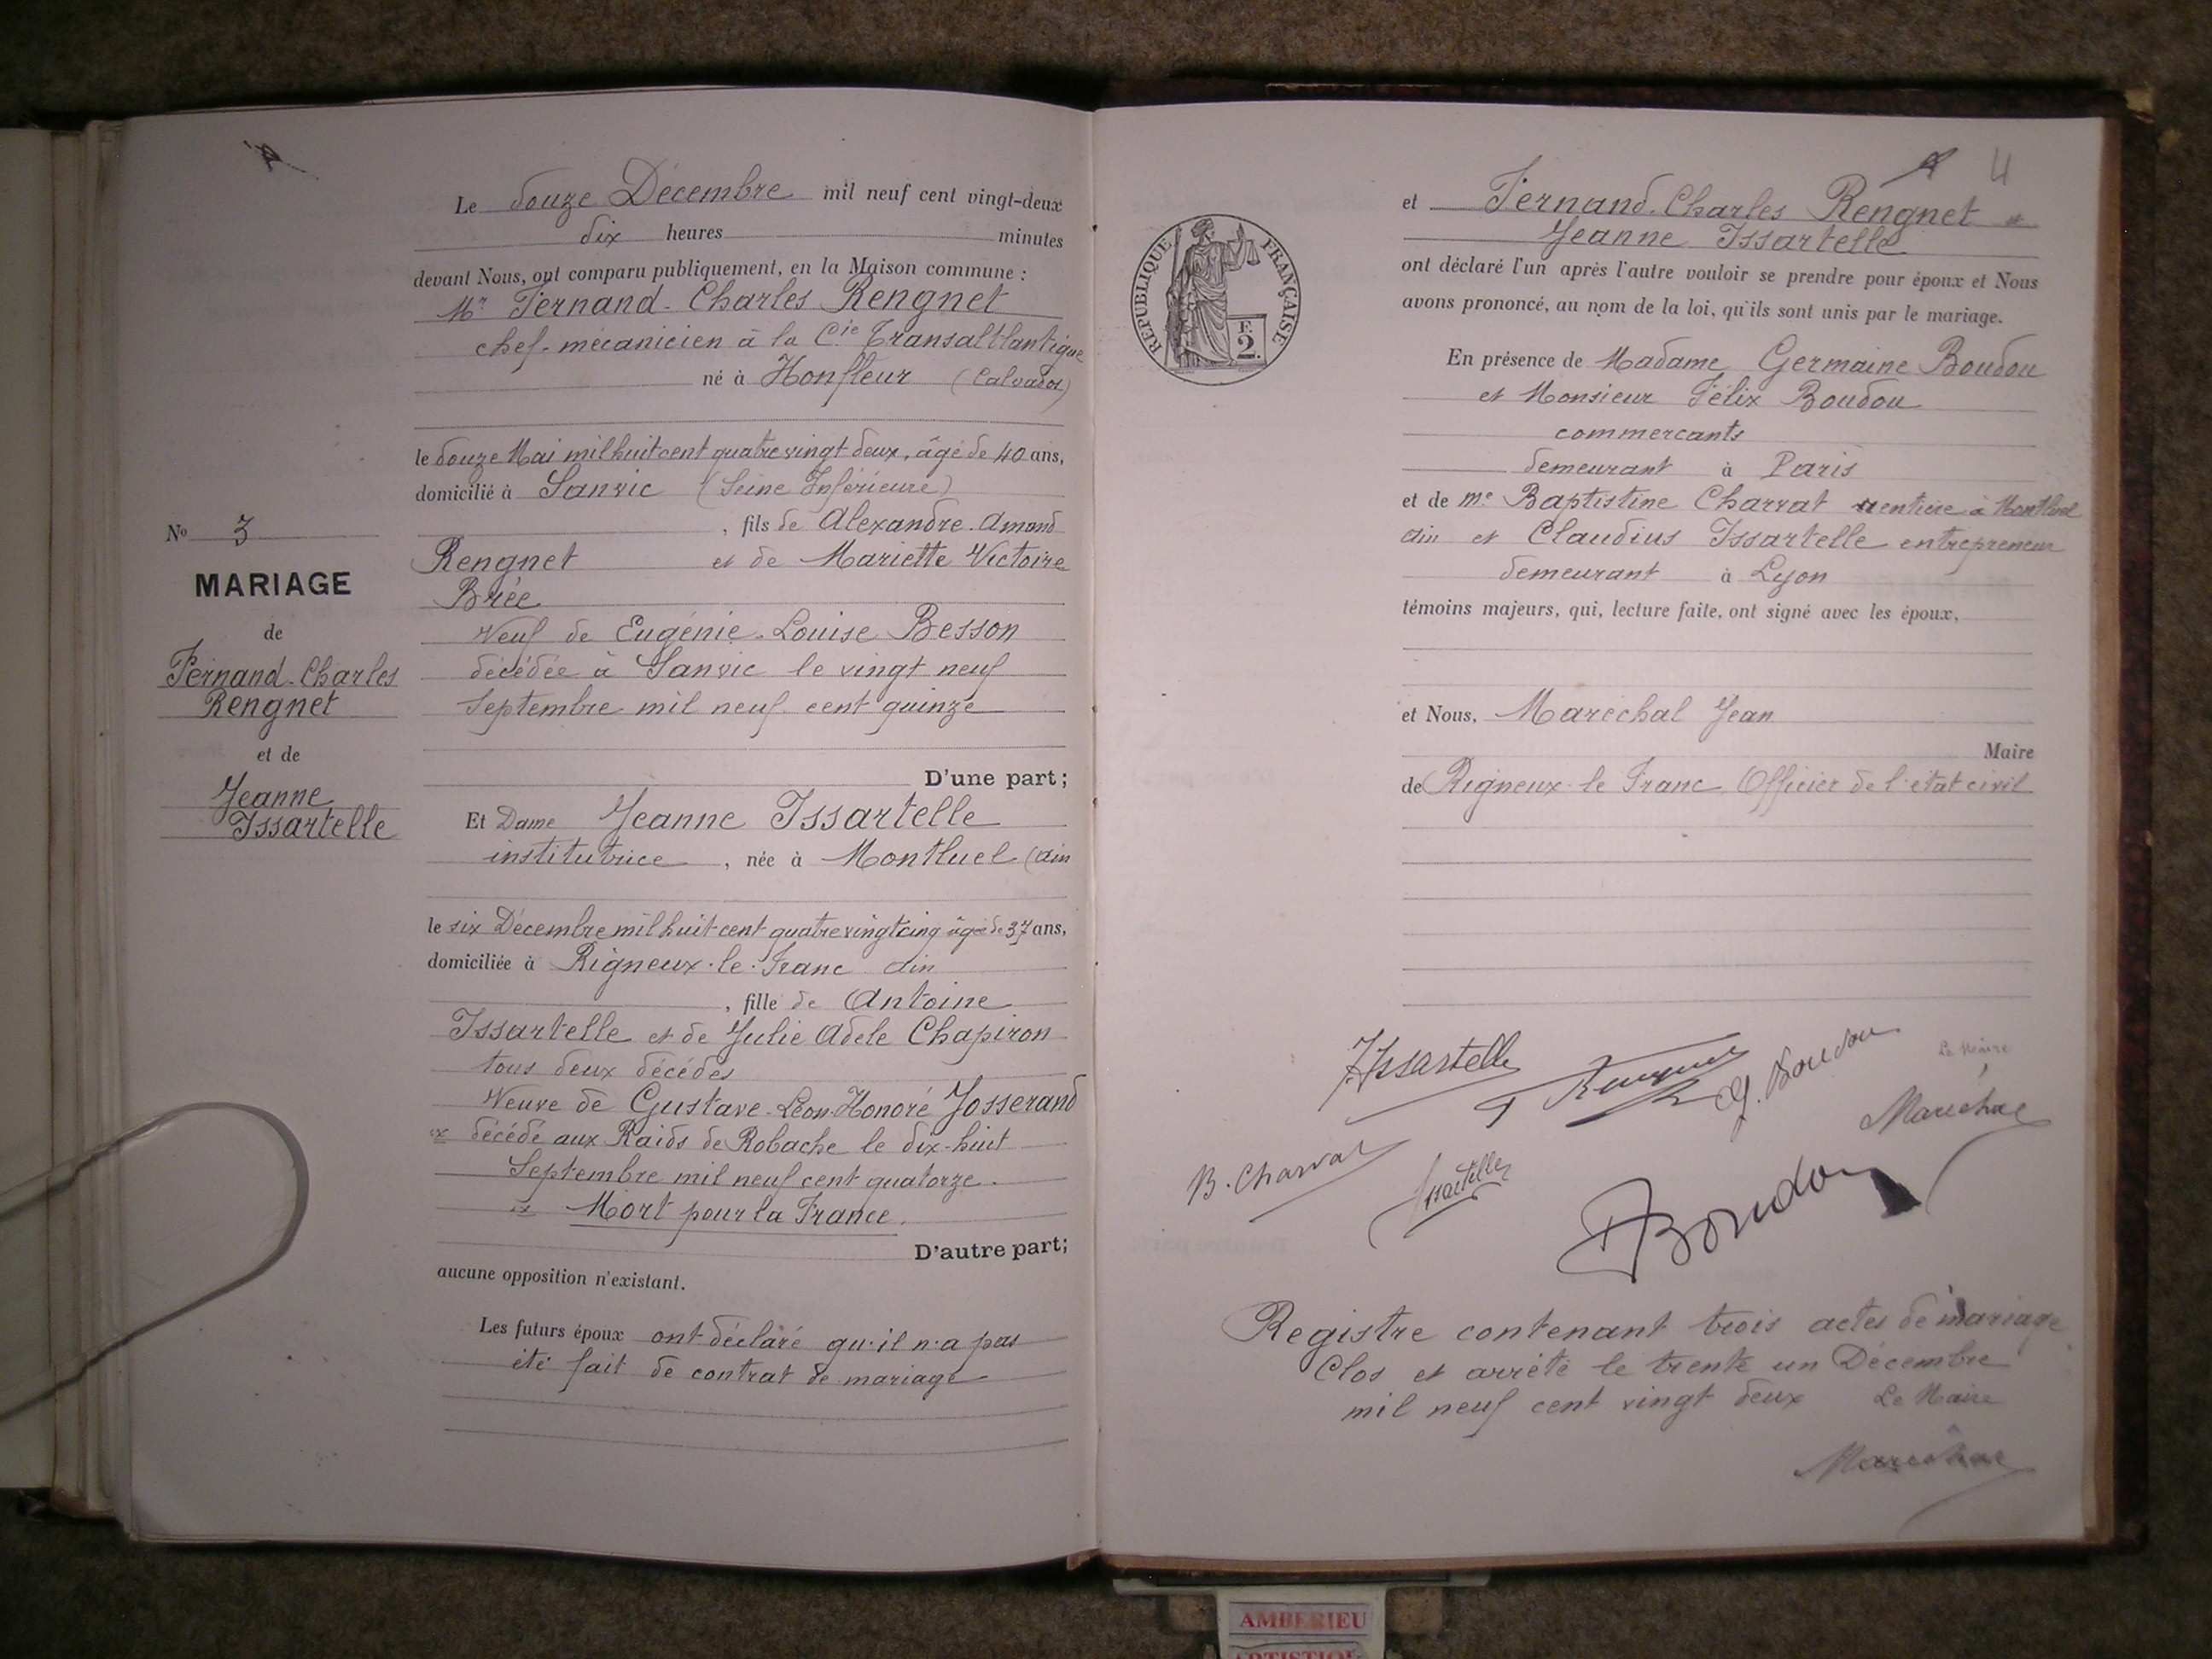 Le douze Décembre mil neuf cent vingt-deux
dix heures minutes
devant Nous, ont comparu publiquement, en la Maison commune :
Mr Fernand-Charles Rengnet
chef-mécanicien à la Cie Transaltlantique
né à Honfleur (Calvados)
le douze Mai mil huit cent quatre vingt deux, âgé de 40 ans,
domicilié à Sanvic (Seine Inférieure)
, fils de Alexandre Amand
Rengnet et de Mariette Victoire
Brée
Veuf de Eugénie-Louise Besson
décédée à Sanvic le vingt neuf
Septembre mil neuf cent quinze
D'une part;
No 3
MARIAGE
de
Fernand-Charles
Rengnet
et de
Jeanne
Issartelle
Et Dame Jeanne Issartelle
institutrice, née à Montluel (Ain
le six Décembre mil huit cent quatre vingt cinq âgée de 37 ans,
domiciliée à Rigneux-le-Franc Ain
, fille de Antoine
Issartelle et de Julie Adèle Chapiron
tous deux décédés
Veuve de Gustave-Léon-Honoré Josserand
décédé aux Raids de Robache le dix-huit
Septembre mil neuf cent quatorze.
Mort pour la France.
D'autre part;
aucune opposition n'existant.
Les futurs époux ont déclaré qu'il n'a pas
été fait de contrat de mariage
4
REPUBLIQUE FRANÇAISE
F.
2.
et Fernand-Charles Rengnet et
Jeanne Issartelle
ont déclaré l'un après l'autre vouloir se prendre pour époux et Nous
avons prononcé, au nom de la loi, qu'ils sont unis par le mariage.
En présence de Madame Germaine Boudou
et Monsieur Félix Boudou
commercants
demeurant à Paris
et de Me Baptistine Charvat rentière à Montluel
Ain et Claudius Issartelle entrepreneur
demeurant à Lyon
témoins majeurs, qui, lecture faite, ont signé avec les époux,
et Nous, Maréchal Jean
Maire
de Rigneux-le-Franc Officier de l'état civil
J. Issartelle
F Rengnet
G. Boudou
Le Maire
Maréchal
B. Charvat
Issartelle
F Boudou
Registre contenant trois actes de mariage
Clos et arrêté le trente un Décembre
mil neuf cent vingt deux Le Maire
Maréchal
AMBERIEU